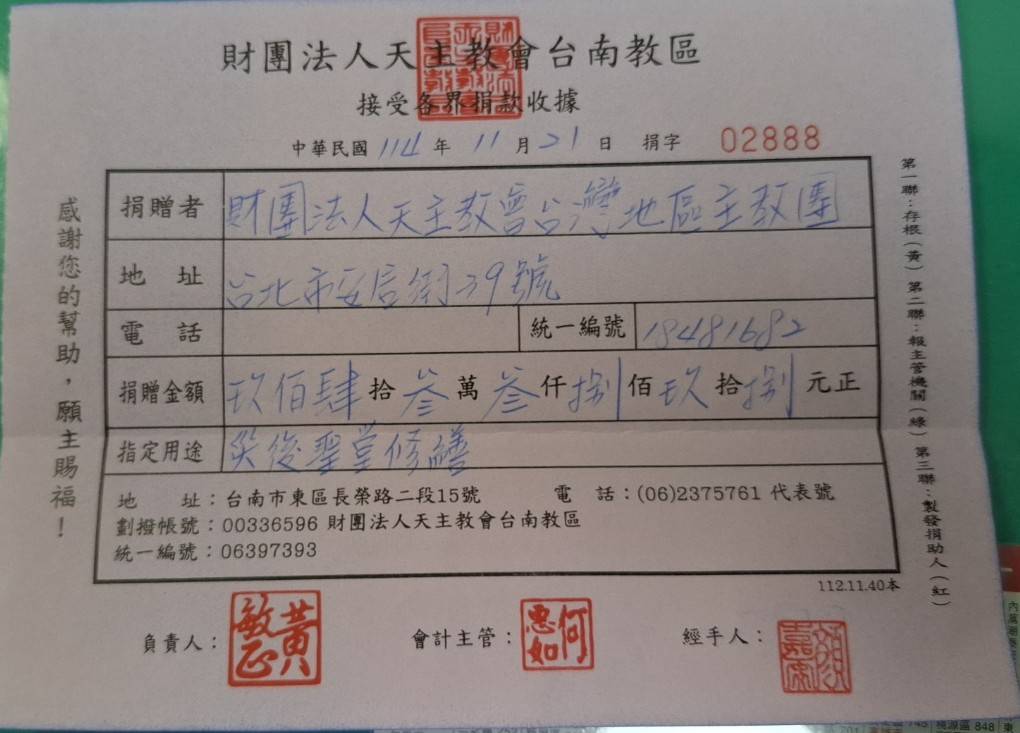 財團法人天主教會台南教區
接受各界捐款收據
中華民國 114 年 11 月 21 日 捐字 02888
捐贈者 財團法人天主教會台灣地區主教團
地 址 台北市安居街39號
電 話 統一編號 18481682
捐贈金額 玖佰肆拾叁萬叁仟捌佰玖拾捌元正
指定用途 災後聖堂修繕
地 址：台南市東區長榮路二段15號 電 話：(06)2375761 代表號
劃撥帳號：00336596 財團法人天主教會台南教區
統一編號：06397393
112.11.40本
負責人： 黃敏正 會計主管： 何惠如 經手人：
感謝您的幫助，願主賜福！
第一聯：存根(黃) 第二聯：報主管機關(綠) 第三聯：製發捐助人(紅)